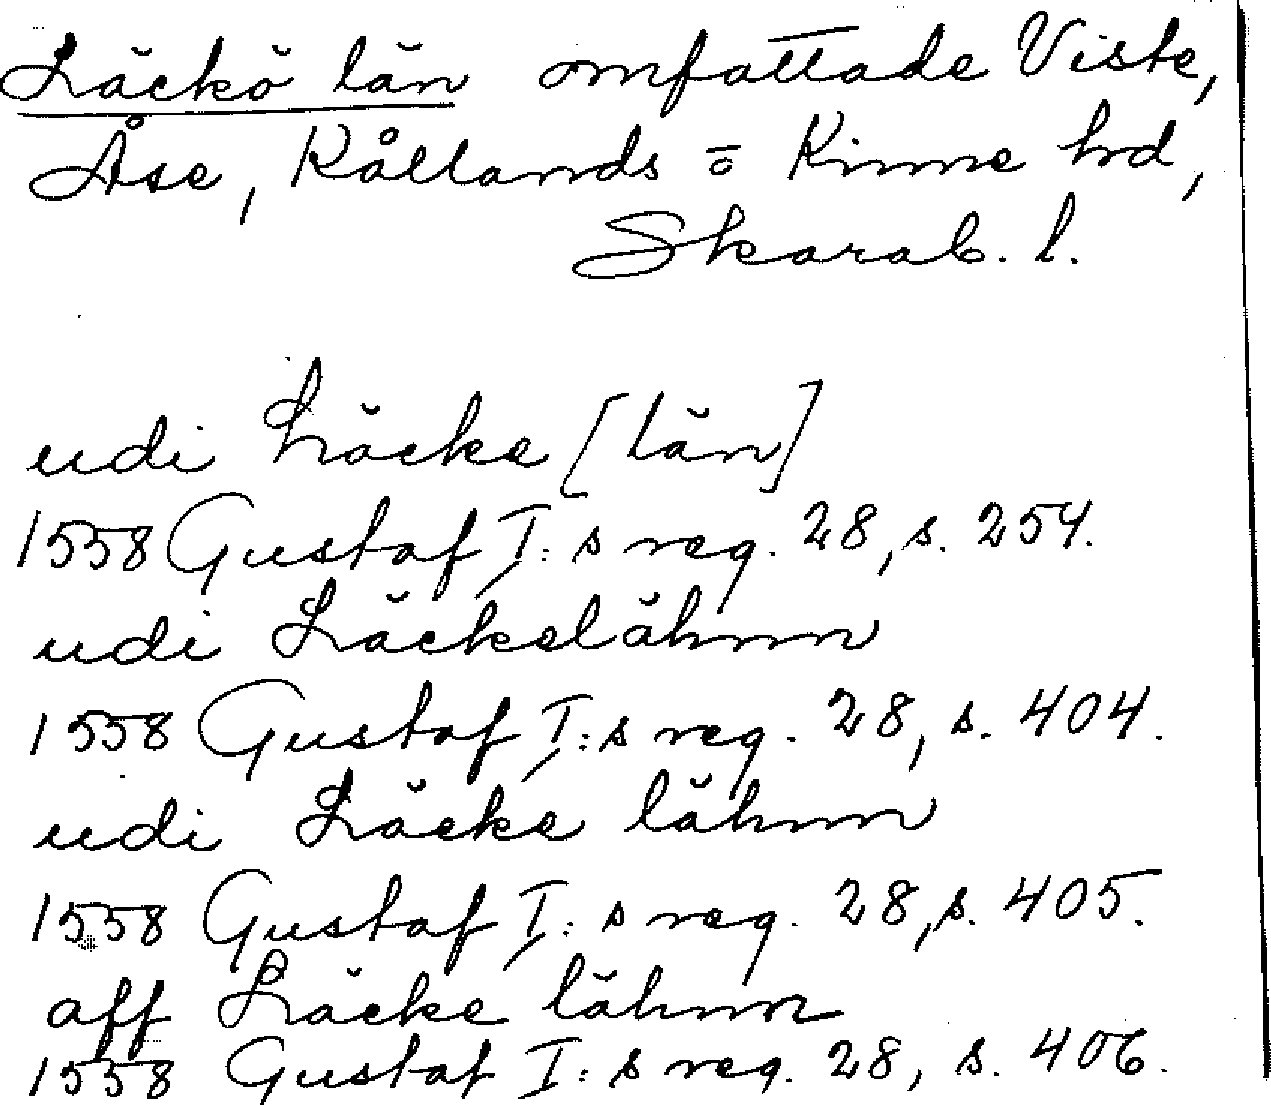 Läckö län omfattade Viste,
Åse, Kållands o Kinne hrd,
Skarab. l.
udi Läcke [län]
1558 Gustaf I:s reg. 28, s. 254.
udi Läckelähnn
1558 Gustaf I:s reg. 28, s. 404.
udi Läcke lähnn
1558 Gustaf I:s reg. 28, s. 405.
aff Läcke lähnn
1558 Gustaf I:s reg. 28, s. 406.